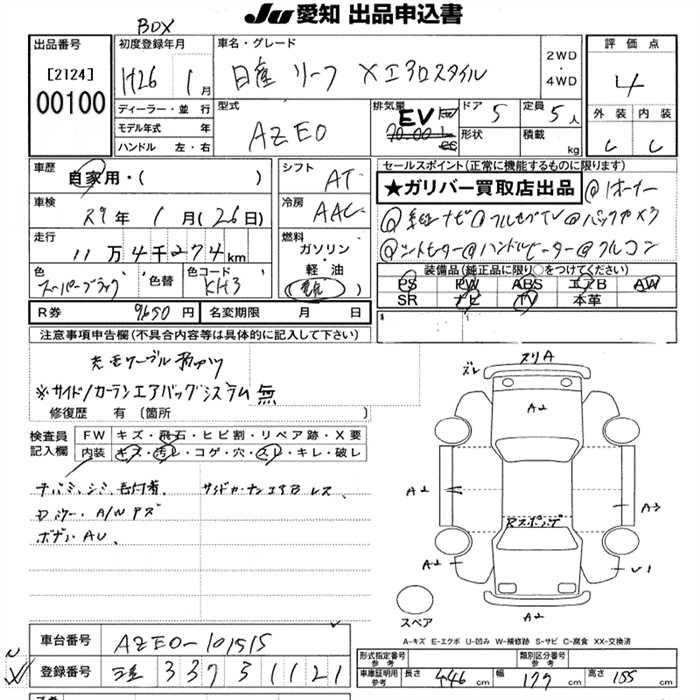 JU 愛知 出品申込書
BOX
出品番号
[2124]
00100
初度登録年月
H26 1 月
ディーラー・並行
モデル年式 年
ハンドル 左・右
車名・グレード
日産 リーフ Xエアロスタイル
2WD
・
4WD
型式
AZE0
排気量
EV
cc
ドア 5
形状
定員 5 人
積載 kg
評価点
4
外装 内装
C C
車歴
自家用・( )
車検
29年 1月(26日)
走行
11万4千274km
色
スーパーブラック
色替
色コード
KH3
シフト
AT
冷房
AAC
燃料
ガソリン
・
軽油
セールスポイント(正常に機能するものに限ります)
★ガリバー買取店出品 @1オーナー
@純正ナビ@フルセグTV@バックカメラ
@シートヒーター@ハンドルヒーター@フルコン
装備品(純正品に限り○をつけてください)
PS PW ABS エアB AW
SR ナビ TV 本革
R券 9650円
名変期限 月 日
注意事項申告欄(不具合内容等は具体的に記入して下さい)
充電ケーブル
※サイド/カーテンエアバッグシステム無
修復歴 有〔箇所 〕
検査員
記入欄
FW キズ・飛石・ヒビ割・リペア跡・X要
内装 キズ・汚レ・コゲ・穴・スレ・キレ・破レ
サイドカーテンエアB レス
ズレ
スリA
A2
A2
A3
Rスポイド
A2
V1
A2
スペア
A-キズ E-エクボ U-凹み W-補修跡 S-サビ C-腐食 XX-交換済
車台番号 AZE0-101515
登録番号 337 1121
形式指定番号
参考
類別区分番号
参考
車庫証明用
参考
長さ 446 cm 幅 177 cm 高さ 155 cm